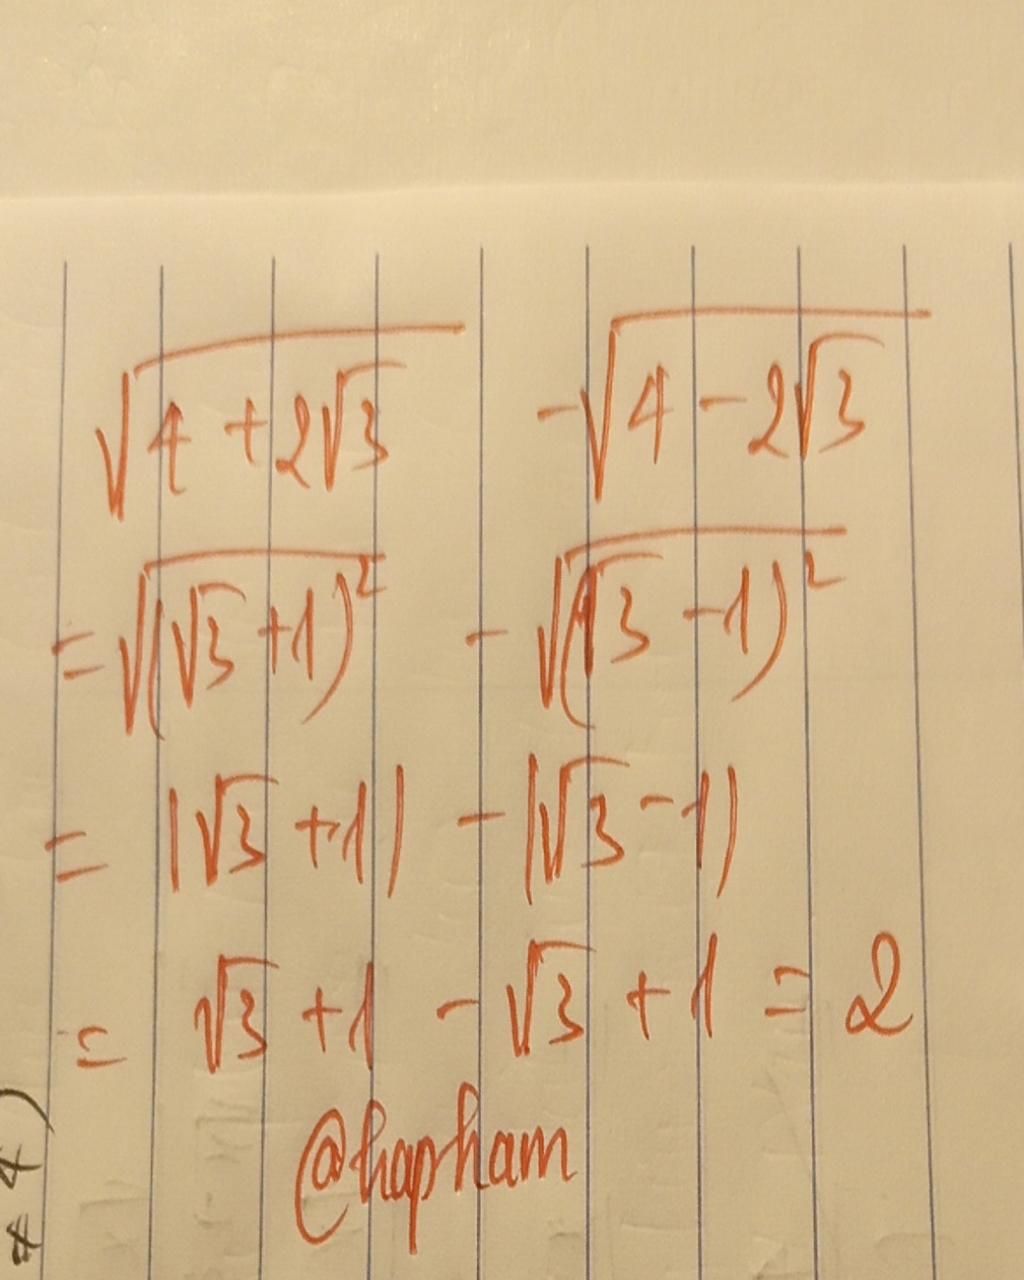 √(4 + 2√3) - √(4 - 2√3)
= √((√3 + 1)²) - √((√3 - 1)²)
= |√3 + 1| - |√3 - 1|
= √3 + 1 - √3 + 1 = 2
@hapham